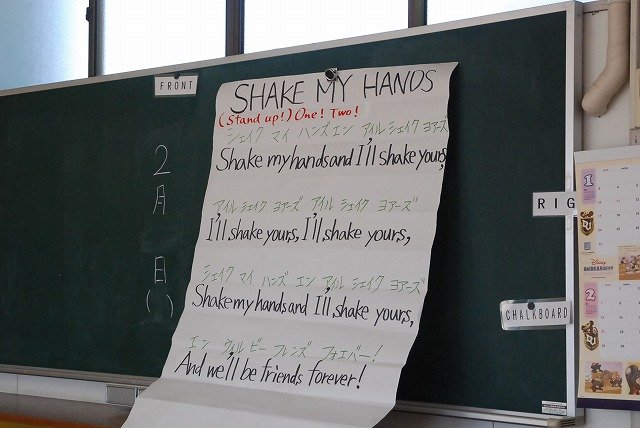 FRONT
SHAKE MY HANDS
(Stand up!) One! Two!
シェイク マイ ハンズ エン アイル シェイク ヨアーズ
Shake my hands and I'll shake yours,
アイル シェイク ヨアーズ アイル シェイク ヨアーズ
I'll shake yours, I'll shake yours,
シェイク マイ ハンズ エン アイル シェイク ヨアーズ
Shake my hands and I'll shake yours,
エン ウィル ビー フレンズ フォエバー!
And we'll be friends forever!
2月 日( )
RIG
CHALKBOARD
1
Disney
2